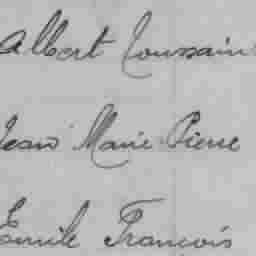 Albert Toussain
Jean Marie Pierre
Emile François